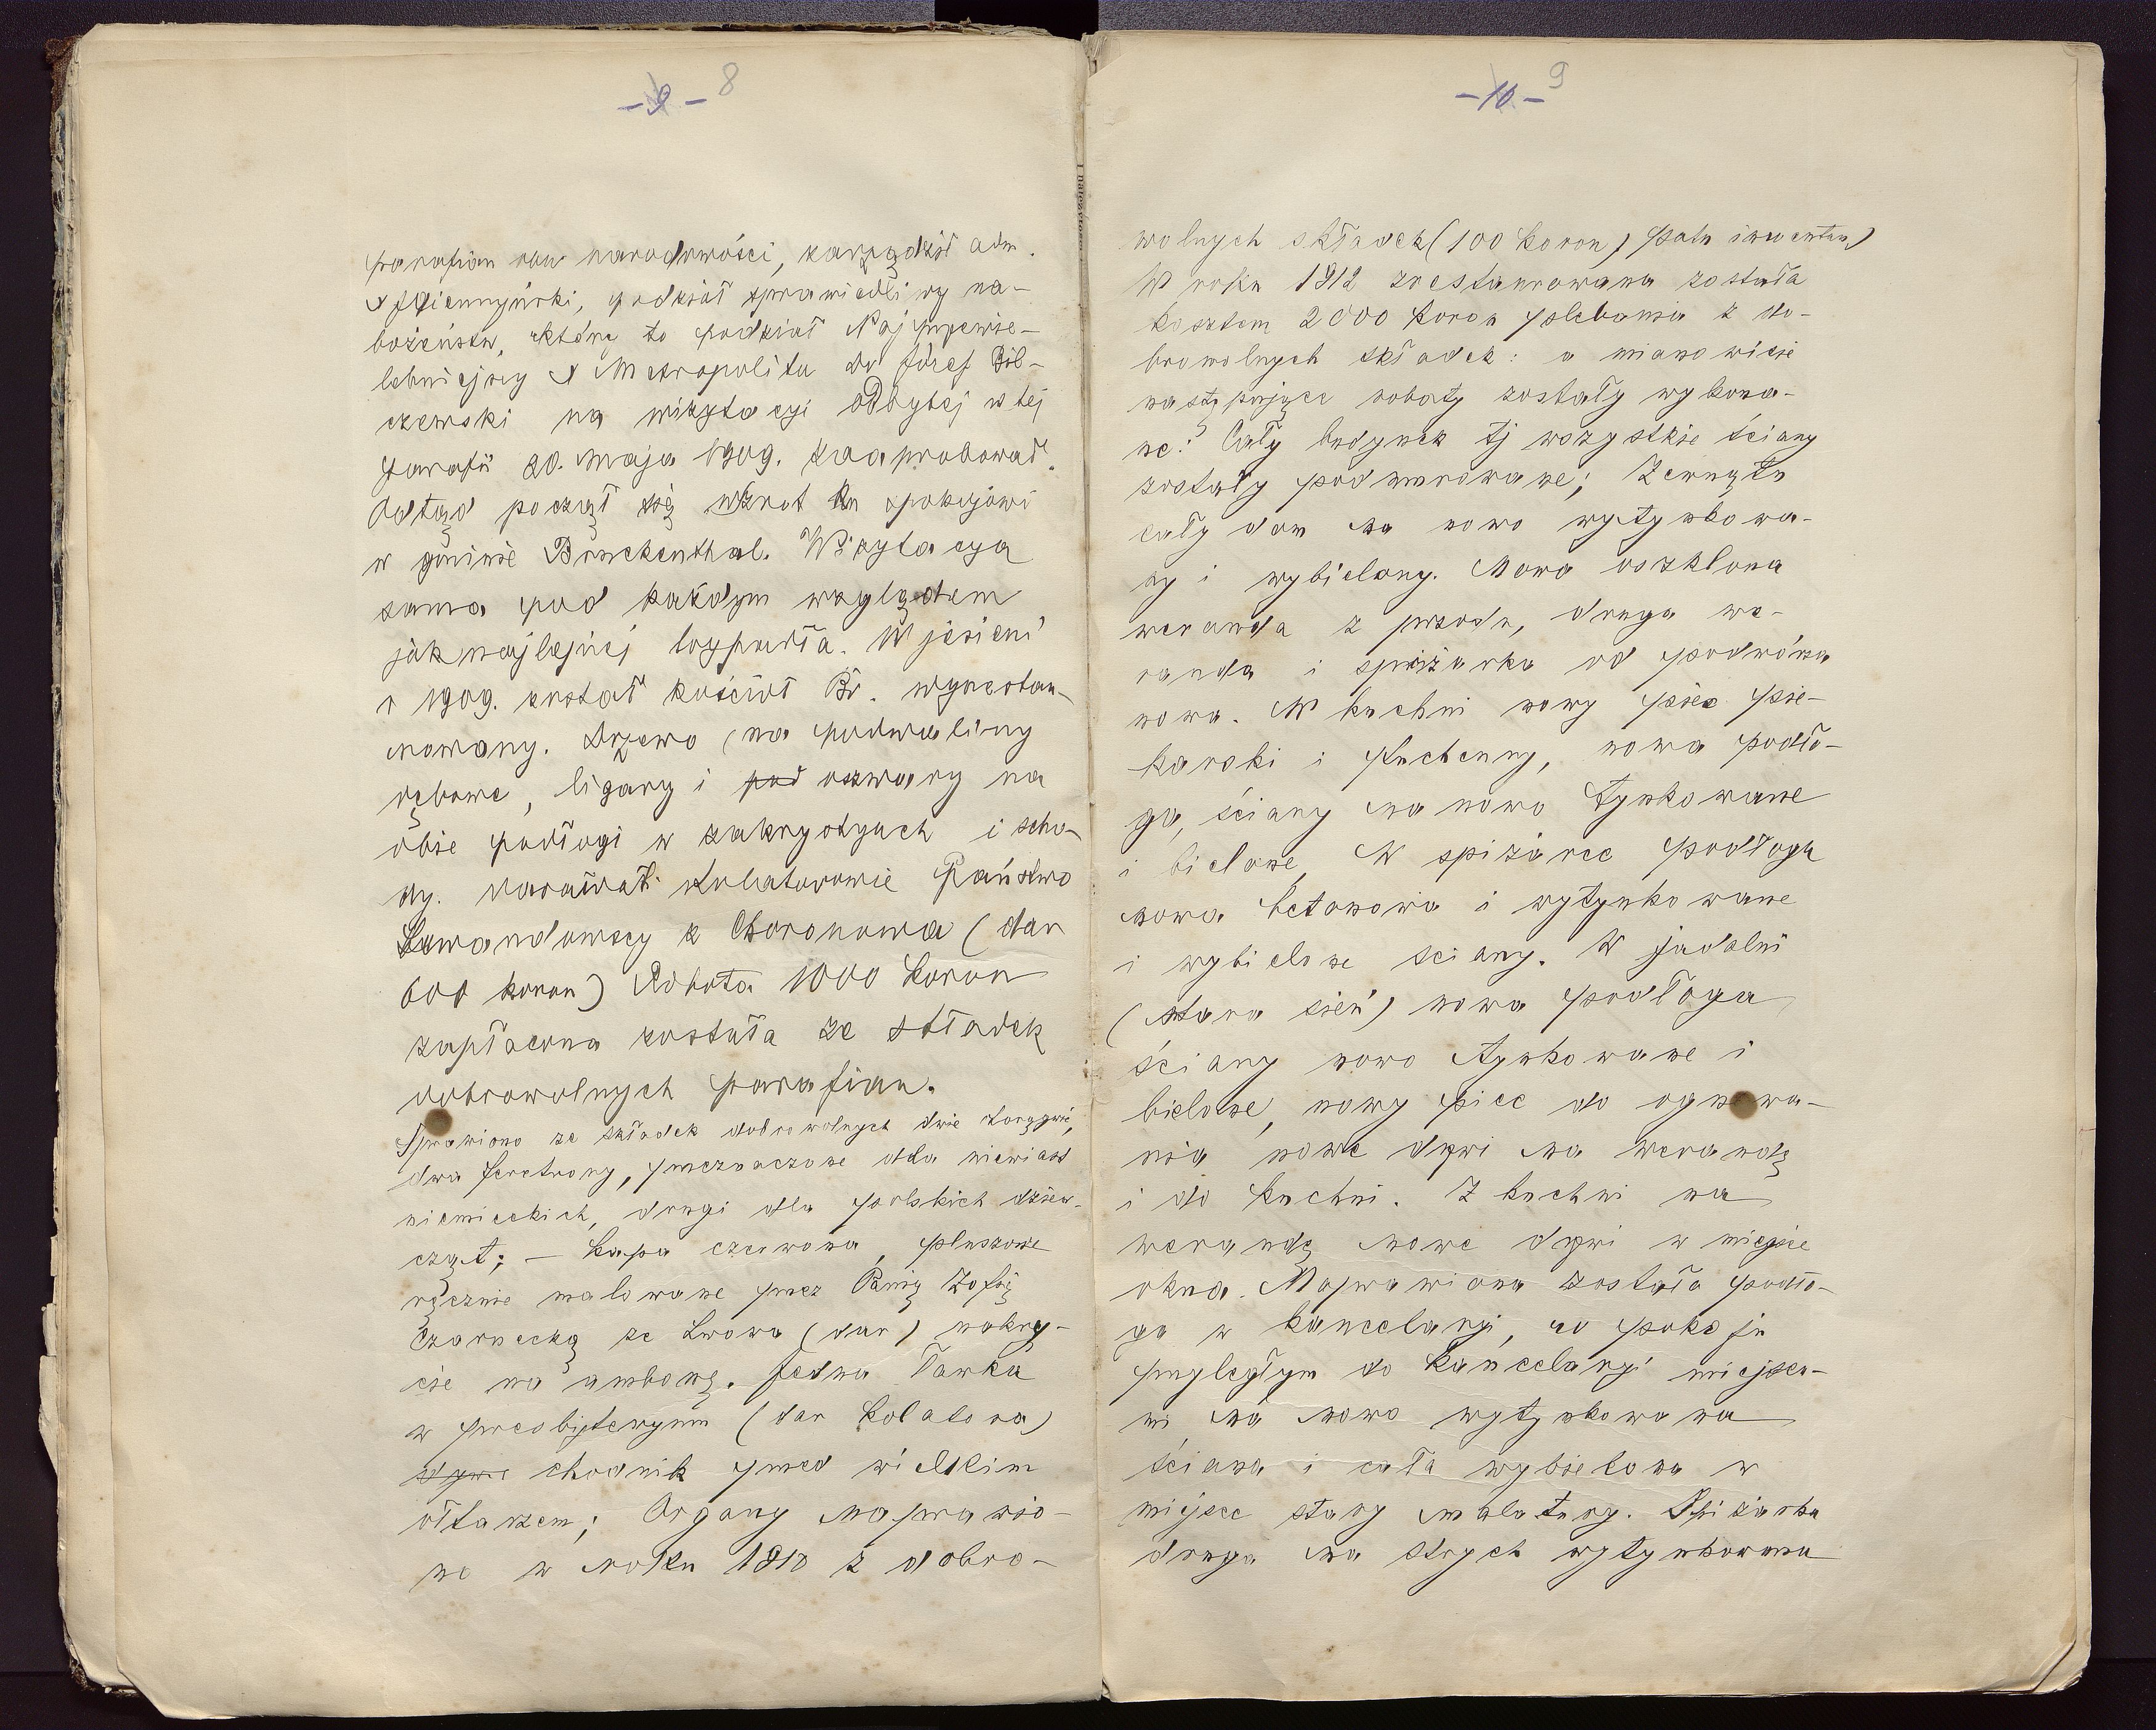 - 9 - 8
parafian obu narodowości, zarządził adm.
X podział sprawiedliwy na-
bożeństw, który to podział Najprzewie-
lebniejszy X Metropolita dr Józef Bil-
czewski na wizytacyi odbytej w tej
parafii 20. maja 1909. zaaprobował.
Odtąd począł się wzrot ku spokojowi
w gminie Bruckenthal. Wizytacya
sama pod każdym względem
jaknajlepiej wypadła. W jesieni
r 1909. został kościół Br. wyrestau-
rowany. Drzewo (na podwaliny
dębowe, ligary i pod oszwary na
obie podłogi w zakrystyach i scho-
dy. darował. Kolatorowie Państwo
Lewandowscy z Choronowa (dar
600 koron) Robota 1000 koron
zapłacona została ze składek
dobrowolnych parafian.
Sprawiono ze składek dobrowolnych dwie chorągwie,
dwa feretrony, przeznaczone dla niewiast
niemieckich, drugi dla polskich dziew-
cząt; - kapa czerwona, pluszowe
ręcznie malowane przez Panią Zofię
Czarnecką ze Lwowa (dar) nakry-
cie na ambonę. Jedna ławka
w presbyteryum (dar kolatora)
chodnik przed wielkim
ołtarzem; Organy naprawio-
no w roku 1910 z dobro-
- 10 - 9
wolnych składek (100 koron)
W roku 1912 zrestaurowana została
kosztem 2000 koron plebania z do-
browolnych składek: a mianowicie
następujące roboty zostały wykona-
ne: Cały budynek tj wszystkie ściany
zostały podmurowane; Zewnątrz
cały dom na nowo wytynkowa-
ny i wybielony. Nowa oszklona
weranda z przodu, druga we-
randa i spiżarka od podwórza
nowa. W kuchni nowy piec pie-
karski i kuchenny, nowa podło-
ga, ściany na nowo tynkowane
i bielone, W spiżarce podłoga
nowa betonowa i wytynkowane
i wybielone ściany. W jadalni
(stara sień) nowa podłoga
ściany nowo tynkowane i
bielone, nowy piec do ogrzewa-
nia nowe drzwi na werandę
i do kuchni. Z kuchni na
werandę nowe drzwi w miejsce
okna. Naprawiona została podło-
ga w kancelaryi, w pokoju
przyległym do kancelaryi miejsca-
mi na nowo wytynkowana
ściana i cała wybielona w
miejsce starej malatury. Spiżarka
druga na strych wytynkowana